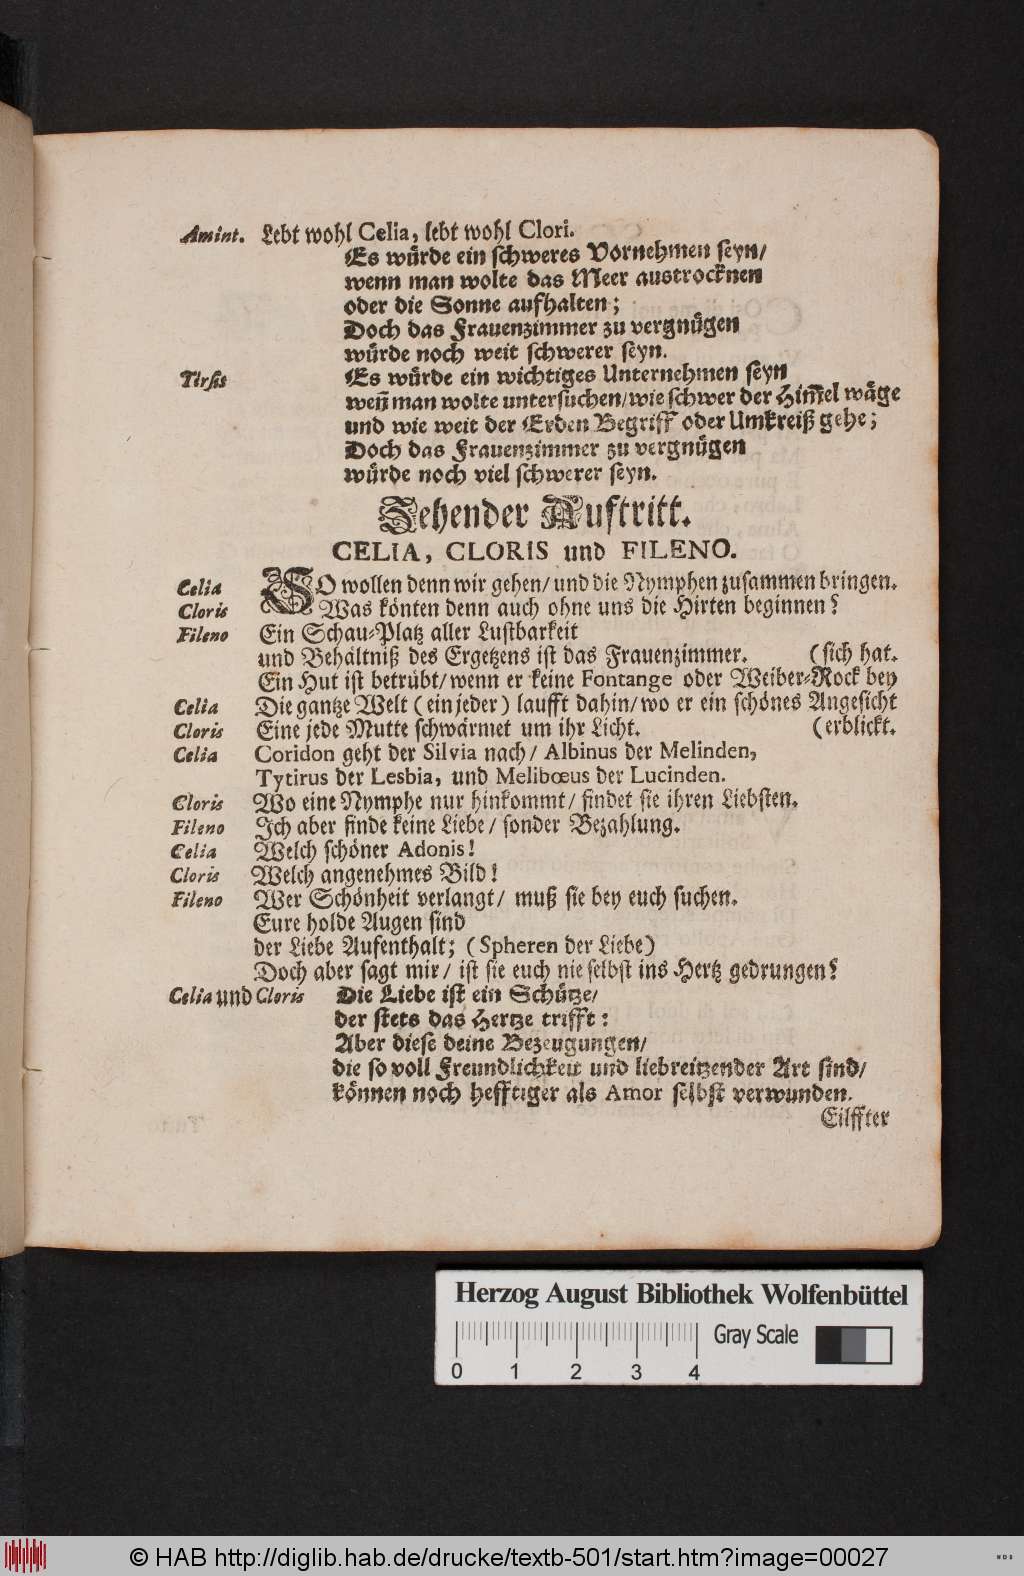 Amint. Lebt wohl Celia, lebt wohl Clori.
Es würde ein schweres Vornehmen seyn/
wenn man wolte das Meer austrocknen
oder die Sonne aufhalten;
Doch das Frauenzimmer zu vergnügen
würde noch weit schwerer seyn.
Tirsis Es würde ein wichtiges Unternehmen seyn
weñ man wolte untersuchen/ wie schwer der Him̃el wäge
und wie weit der Erden Begriff oder Umkreiß gehe;
Doch das Frauenzimmer zu vergnügen
würde noch viel schwerer seyn.
Zehender Auftritt.
CELIA, CLORIS und FILENO.
Celia SO wollen denn wir gehen/ und die Nymphen zusammen bringen.
Cloris Was könten denn auch ohne uns die Hirten beginnen?
Fileno Ein Schau-Platz aller Lustbarkeit
und Behältniß des Ergetzens ist das Frauenzimmer. (sich hat.
Ein Hut ist betrübt/ wenn er keine Fontange oder Weiber-Rock bey
Celia Die gantze Welt (ein jeder) laufft dahin/ wo er ein schönes Angesicht
Cloris Eine jede Mutte schwärmet um ihr Licht. (erblickt.
Celia Coridon geht der Silvia nach/ Albinus der Melinden,
Tytirus der Lesbia, und Melibœus der Lucinden.
Cloris Wo eine Nymphe nur hinkommt/ findet sie ihren Liebsten.
Fileno Ich aber finde keine Liebe/ sonder Bezahlung.
Celia Welch schöner Adonis!
Cloris Welch angenehmes Bild!
Fileno Wer Schönheit verlangt/ muß sie bey euch suchen.
Eure holde Augen sind
der Liebe Aufenthalt; (Spheren der Liebe)
Doch aber sagt mir/ ist sie euch nie selbst ins Hertz gedrungen?
Celia und Cloris Die Liebe ist ein Schütze/
der stets das Hertze trifft:
Aber diese deine Bezeugungen/
die so voll Freundlichkeit und liebreitzender Art sind/
können noch hefftiger als Amor selbst verwunden.
Eilffter
Herzog August Bibliothek Wolfenbüttel
Gray Scale
0 1 2 3 4
© HAB http://diglib.hab.de/drucke/textb-501/start.htm?image=00027